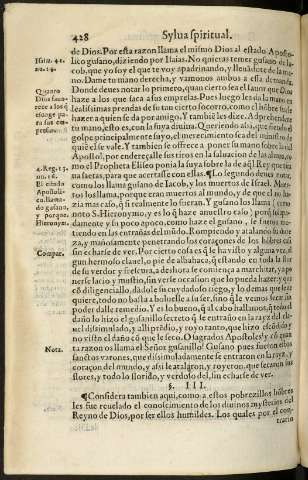 428 Sylua spiritual.
de Dios. Por esta razon llama el mismo Dios al estado Aposto-
lico gusano, diziendo por Isaias. No quietas temer gusano de Ia-
cob, que yo soy el que te voy apadrinando, y lleuandote de la ma-
no. Dame tu mano derecha, y vamonos ambos a esta demanda.
Donde deues notar lo primero, quan cierto sea el fauor que Dios
haze a los que saca a sus empresas. Pues luego les da su mano en
lealissimas prendas de su tan cierto socorro, como el hōbre suele
hazer a quien se da por amigo. Y tambiē les dize. A prehendere
tu mano, esto es, con la suya diuina. Queriendo
golpe principalmente suyo, el merecimiento sea del ministro de
que el se vale. Y tambien se offrece a poner su mano sobre la del
Apostol, por enderecalle sus tiros en la saluacion de las almas, co-
mo el Propheta Eliseo ponia la suya sobre la de aq̄l Rey que tira-
ua saetas, para que acertasse con ellas. ¶ Lo segundo deues notar,
como los llama gusano de Iacob, y los muertos de Israel. Muer-
tos los llama, porque eran muertos al mundo, y de que el los tu-
uo mas caso, q̄ si realmente lo fueran. Y gusano los llama (como
noto S. Hieronymo, y es lo q̄ haze a nuestro caso) porq̄ solapa-
damente y su poco apoco, como haze el gusano, se fueron me-
tiendo en las entrañas del mūdo. Rompiendo y ablando su dure-
za, y mañosamente penetrando los coraçones de los hōbres casi
sin echarse de ver. Por cierto cosa es q̄ se ha visto y alguna vez, al-
gun hermoso clauel, o pie de albahaca, q̄ estando en toda la flor
de su verdor y frescura, a deshora se comēça a marchitar, y a po-
nerse lacio y mustio, sin verse occasion que lo pueda hazer, y que
cō diligencia lo, dalo le su cuydadoso riego, y lo demas que le re-
quiere, todo no basta a boluelle a su ser, sino q̄ le vemos secar sin
poder dalle remedio. Y es lo bueno, q̄ al cabo hallamos, q̄ todo el
daño lo hizo el gusanillo secreto q̄ se entrado en la rayz del cla-
uel dissimulado, y alli prēdio, y royo tanto, que hizo escōdido y
no visto el daño cō que le seco. O sagrados Apostoles, y cō quan
ta razon os llama el Señor gusanillo? Gusano pues fueron estos
sanctos varones, que dissimuladamente se entraron en la rayz, y
coraçon del mundo, y assi le atalgron, y royeron, que secaron sus
flores, y todo lo florido, y verde del, sin echarse de ver.
§. III.
¶ Considera tambien aqui, como a estos pobrezillos hōbres
les fue reuelado el conoscimiento de los diuinos mysterios del
Reyno de Dios, por ser ellos humildes. Los quales por el con-
trario
Isai. 41.
nu. 14.
Quanto
Dios fauo-
rece a los q̄
escoge pa-
ra sus em-
presas.
4. Reg. 13.
nu. 16.
El estado
Apostoli-
co, llama-
do gusano,
y porque.
Hieronym.
Compar.
Nota.